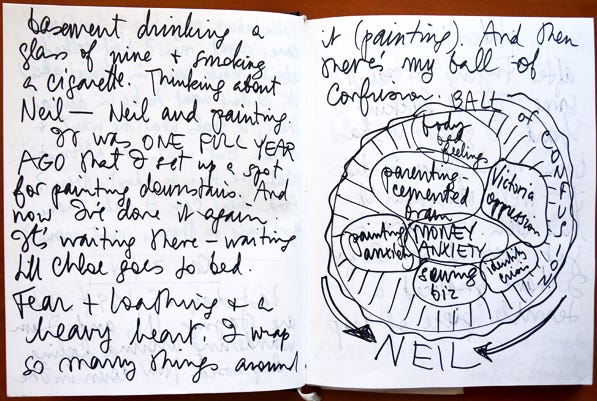 basement drinking a
glass of wine + smoking
a cigarette. Thinking about
Neil — Neil and painting.
It was ONE FULL YEAR
AGO that I set up a spot
for painting downstairs. And
now I've done it again.
It's waiting there — waiting
till Chloe goes to bed.
Fear + loathing + a
heavy heart. I wrap
so many things around
it (painting). And then
there's my ball of
confusion.
BALL of CONFUSION
body
feelings
parenting-
cemented
brain
Victoria
oppression
painting
anxiety
MONEY
ANXIETY
identity
crisis
sewing
biz
NEIL